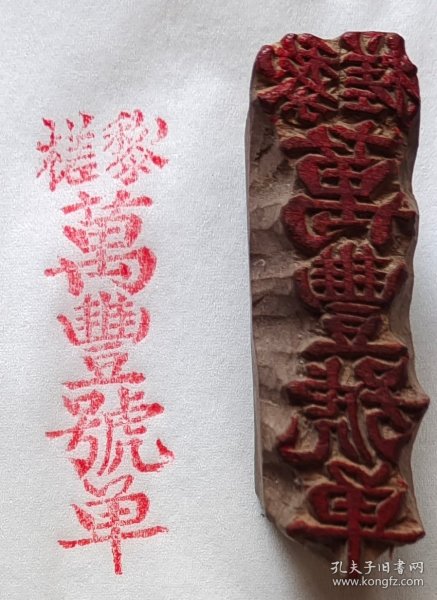 黎槎
萬豐號单
孔夫子旧书网
www.kongfz.com